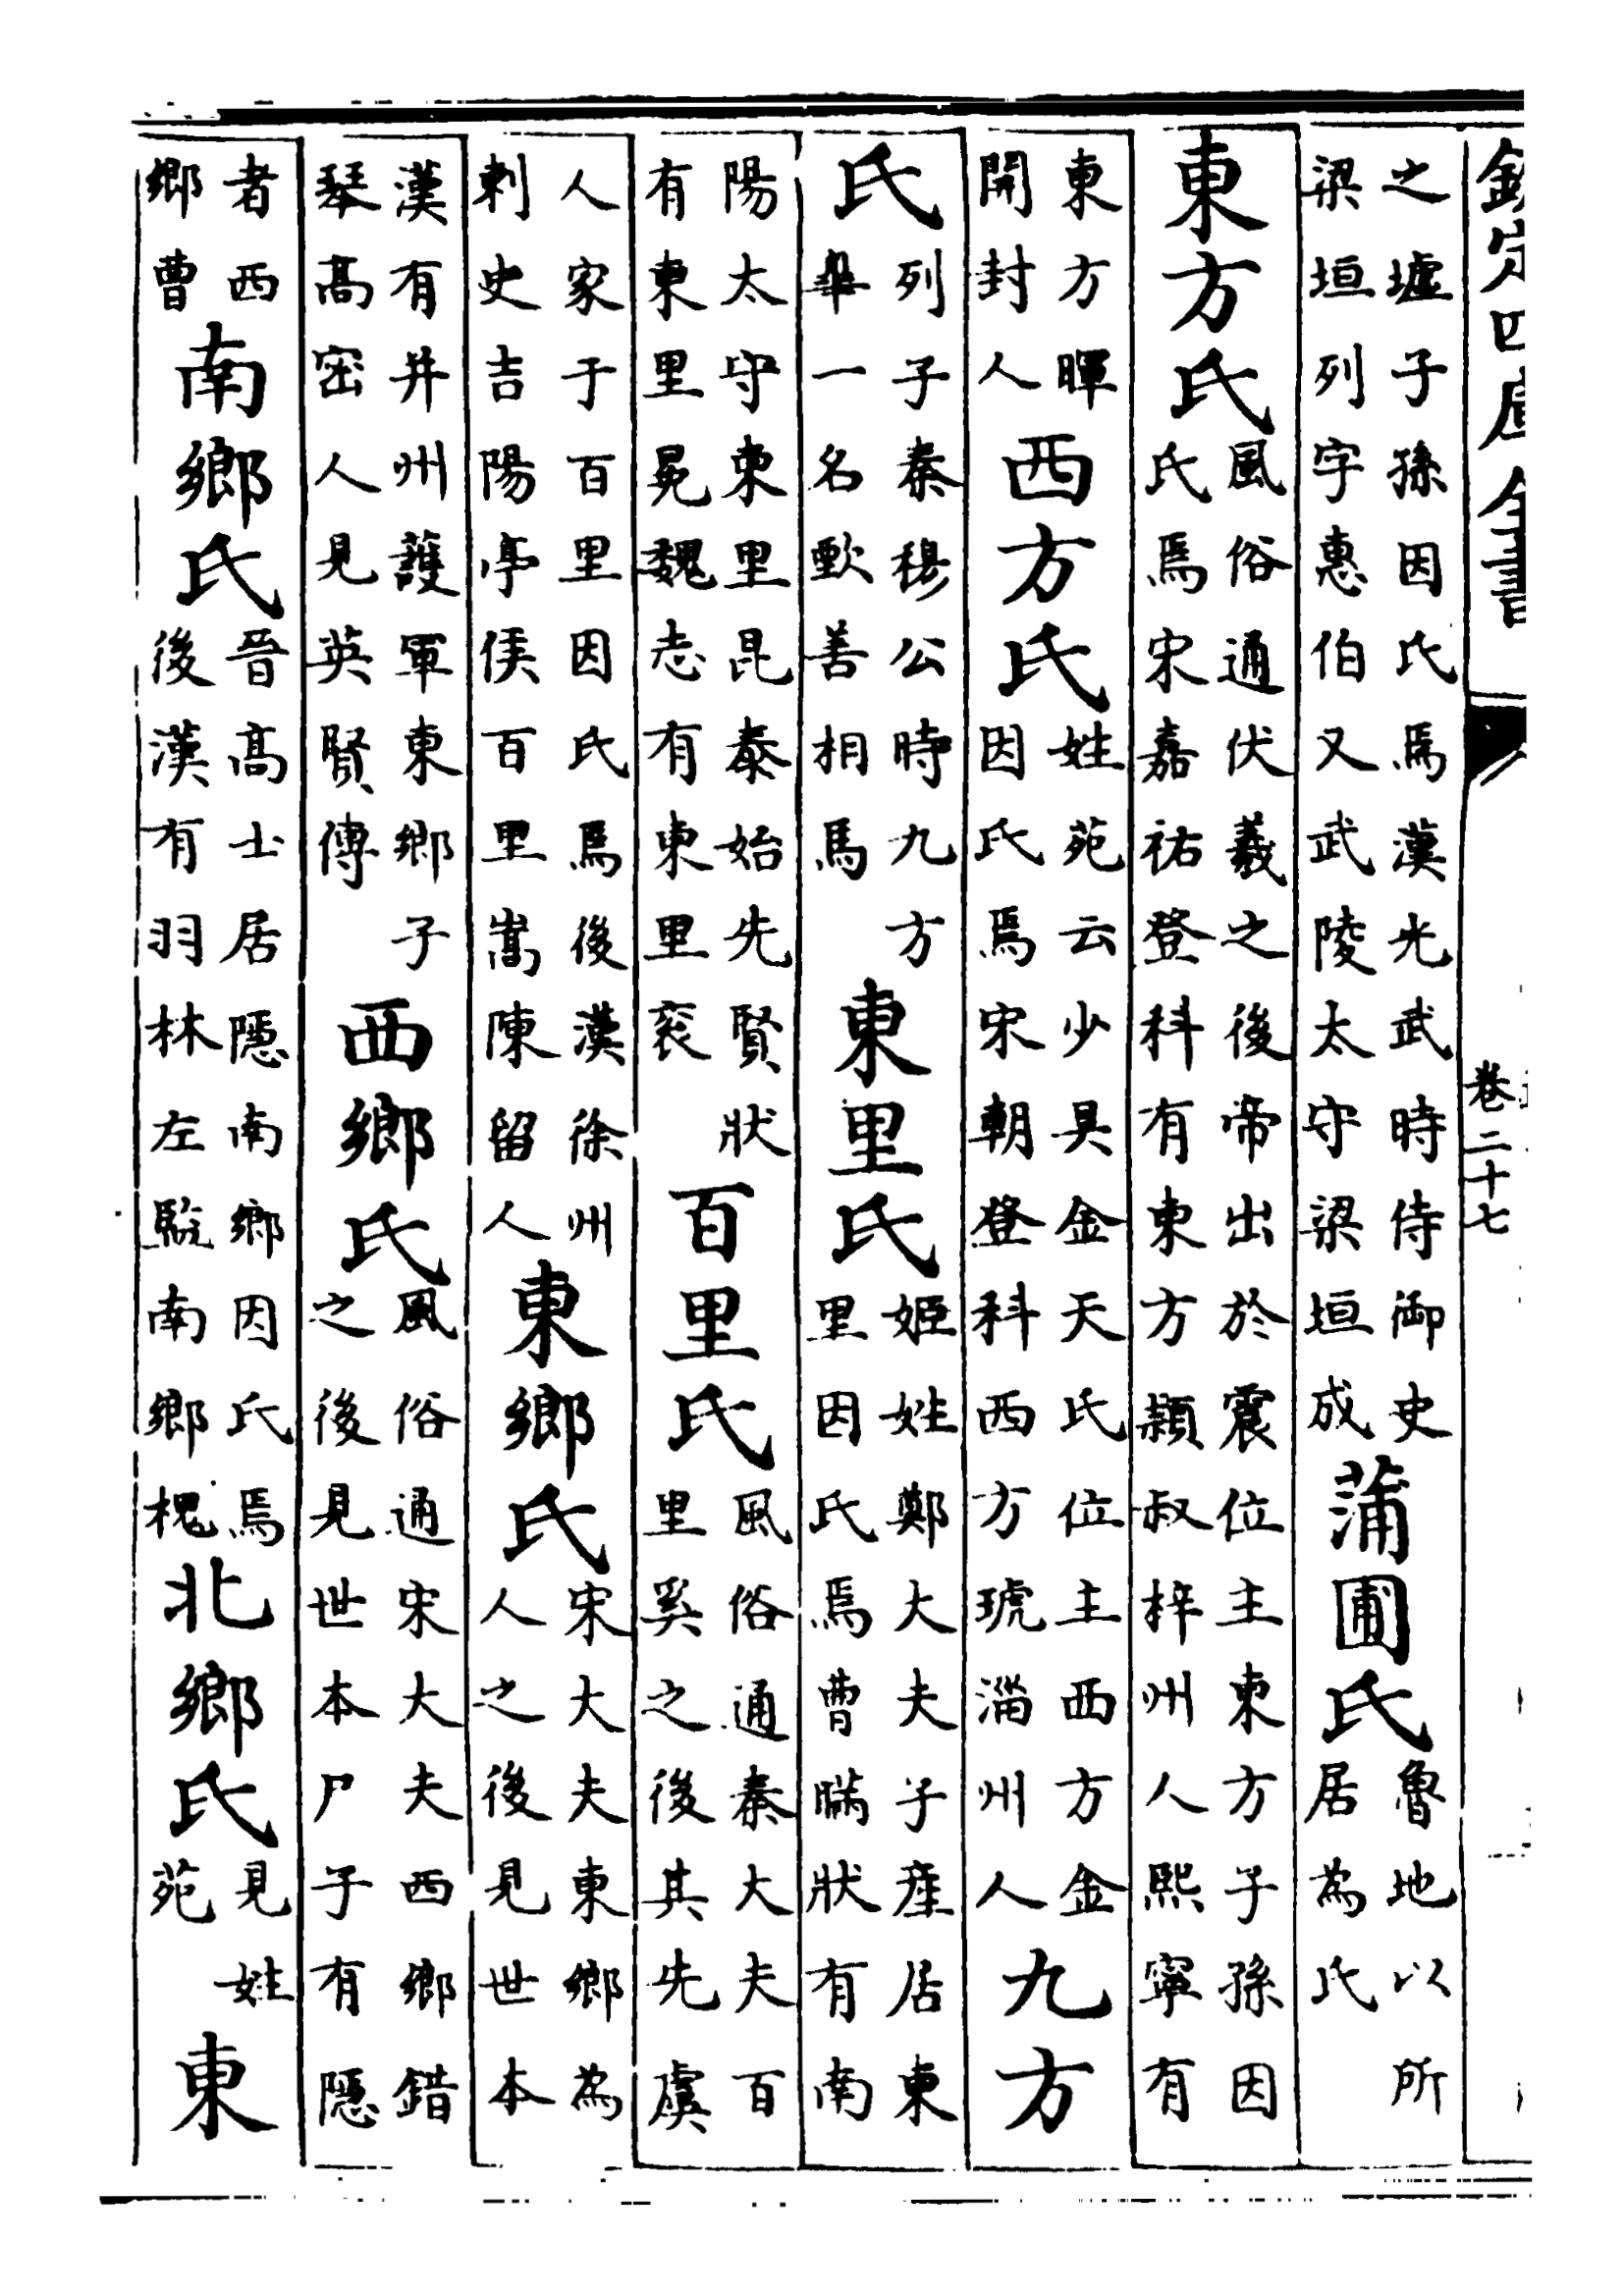 欽定四庫全書 卷二十七
之墟子孫因氏焉漢光武時侍御史
梁垣列字惠伯又武陵太守梁垣成
蒲圃氏
魯地以所
居為氏
東方氏
風俗通伏羲之後帝出於震位主東方子孫因
氏焉宋嘉祐登科有東方頴叔梓州人熙寧有
東方暉
開封人
西方氏
姓苑云少昊金天氏位主西方金
因氏焉宋朝登科西方琥淄州人
九方
氏
列子秦穆公時九方
臯一名歅善相馬
東里氏
姬姓鄭大夫子產居東
里因氏焉曹瞞狀有南
陽太守東里昆泰始先賢狀
有東里冕魏志有東里袞
百里氏
風俗通秦大夫百
里奚之後其先虞
人家于百里因氏焉後漢徐州
刺史吉陽亭侯百里嵩陳留人
東鄉氏
宋大夫東鄉為
人之後見世本
漢有并州護軍東鄉子
琴高密人見英賢傳
西鄉氏
風俗通宋大夫西鄉錯
之後見世本尸子有隱
者西
鄉曹
南鄉氏
晉高士居隱南鄉因氏焉
後漢有羽林左監南鄉槐
北鄉氏
見姓
苑
東